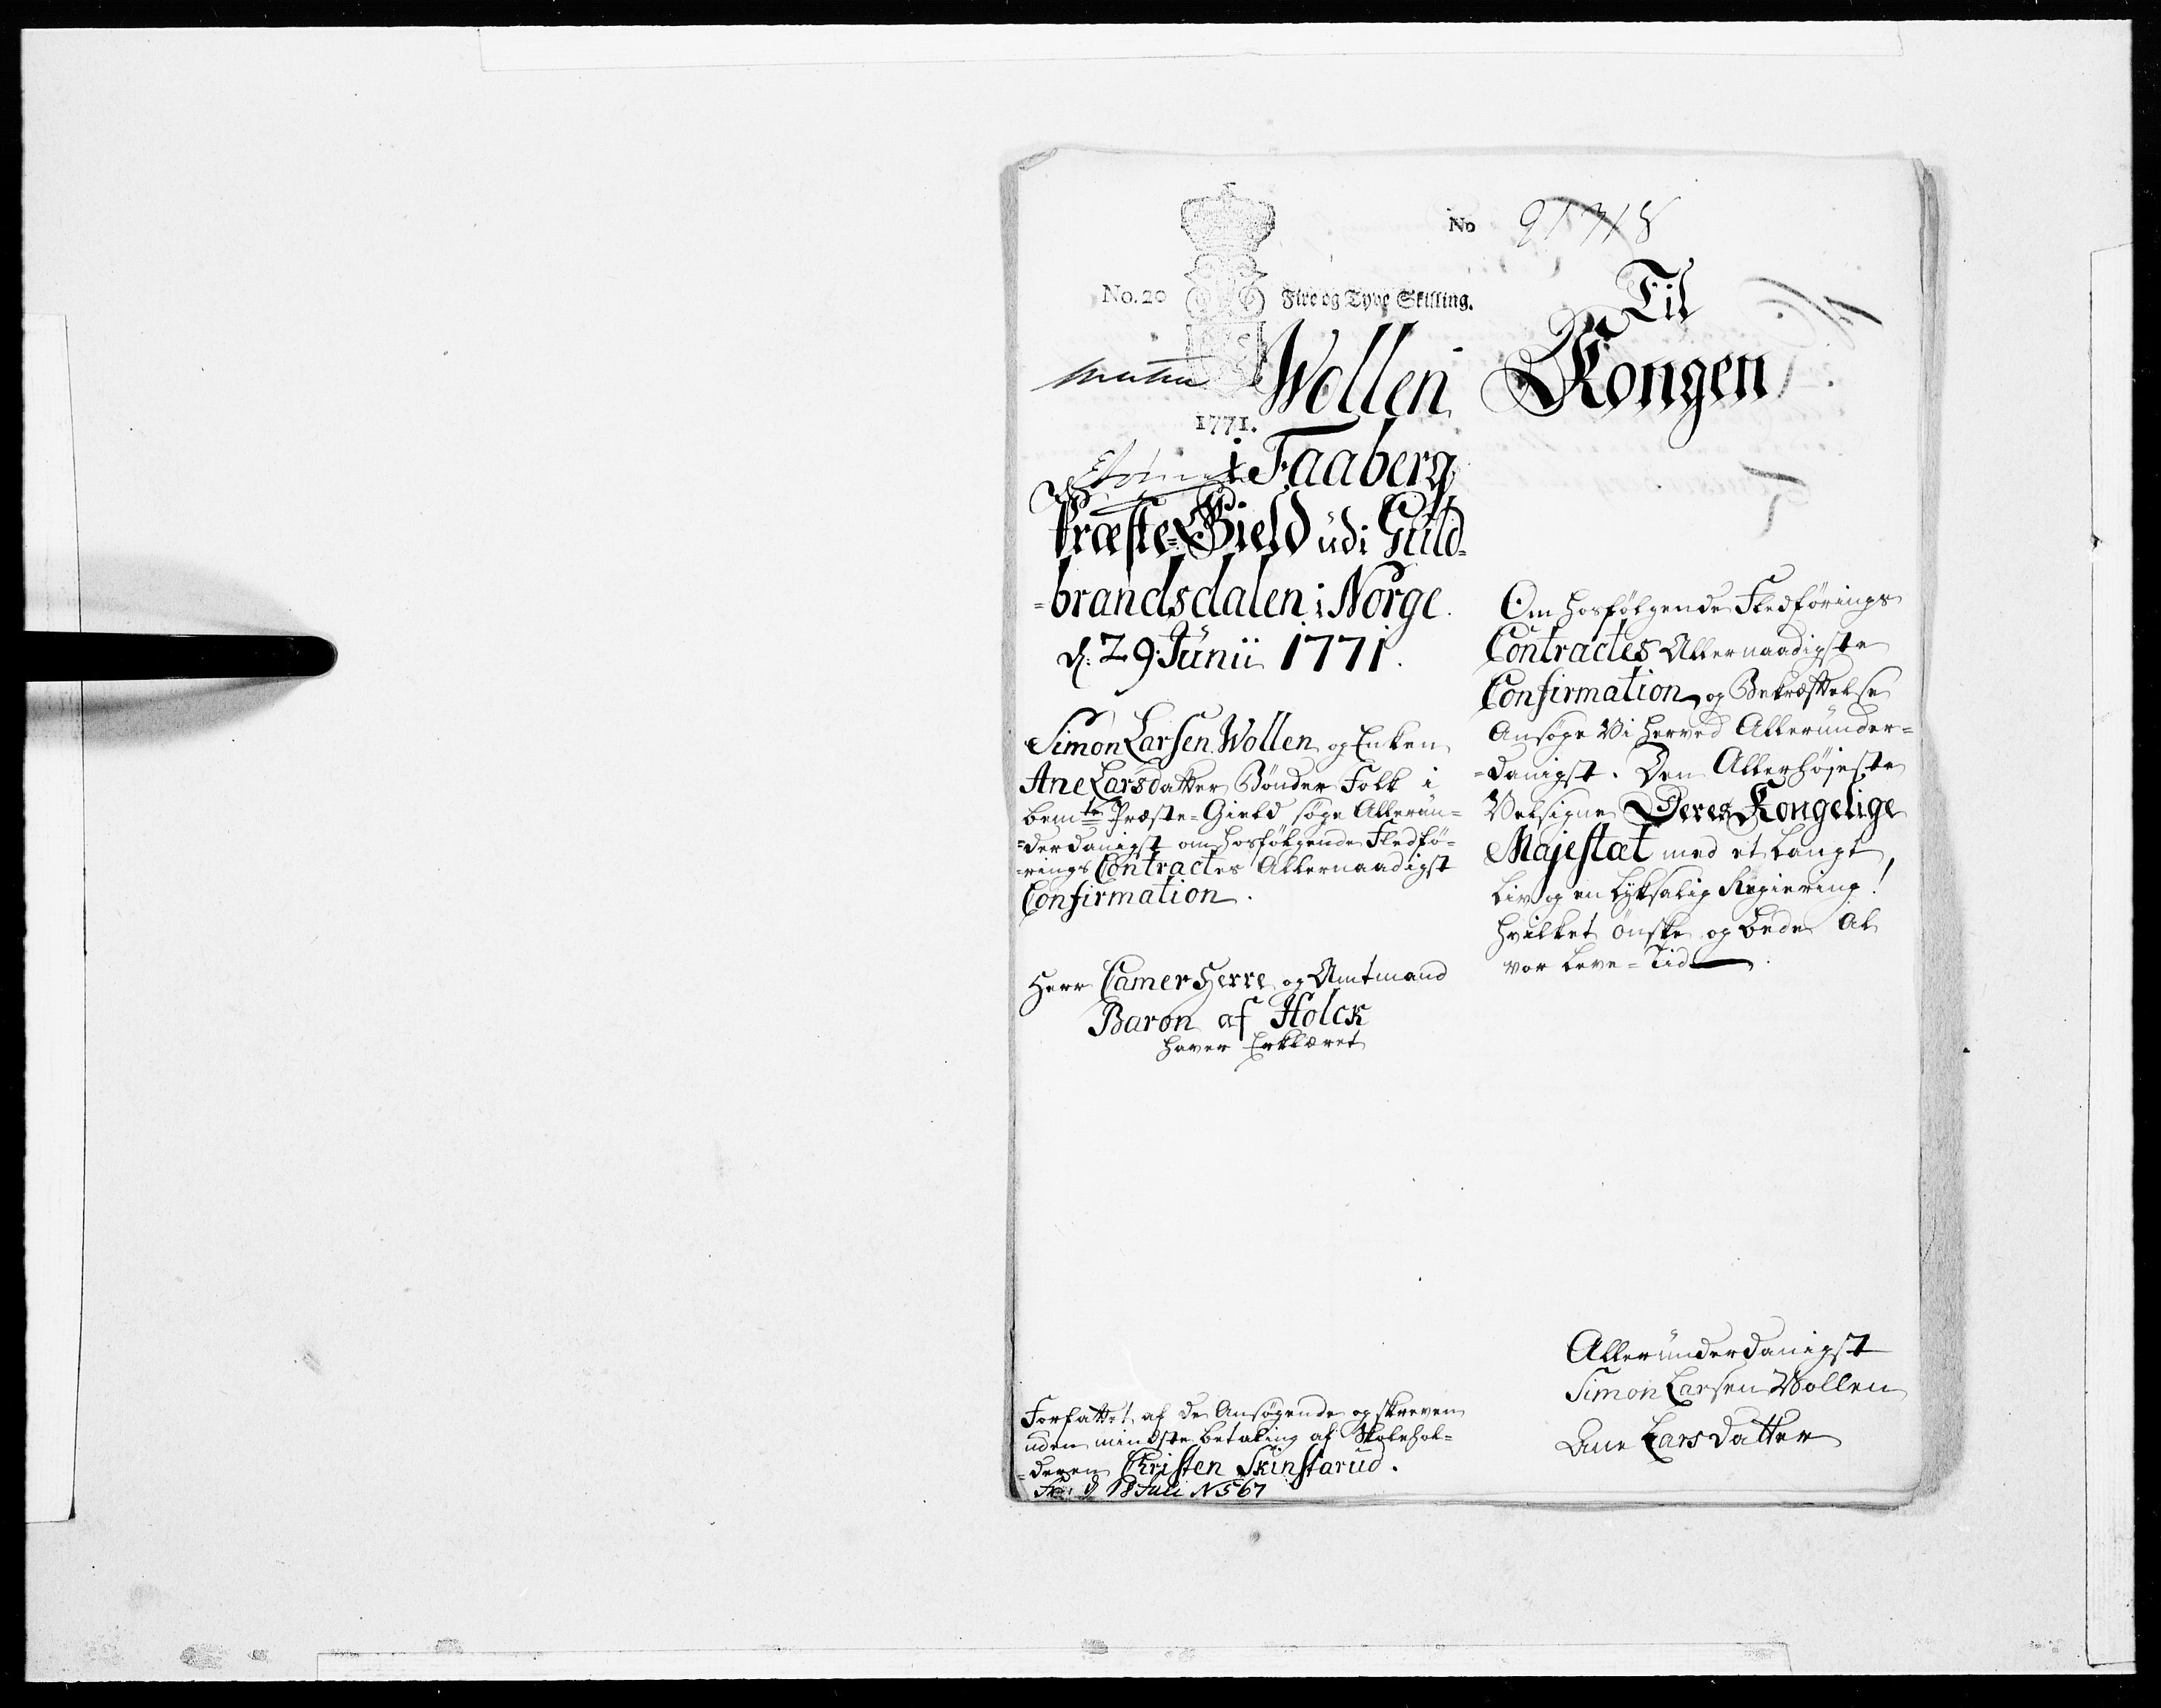 No 91718
No. 20 Fire og Tyve Skilling.
Wollen
1771.
i Faaberg
Præste-Gield udi Guld-
=brandsdalen i Norge.
d: 29 Junii 1771.
Simon Larsen Wollen og Enken
Ane Larsdatter Bönder Folk i
bemte Præste-Gield söge Allerun-
=derdanigst om hosfölgende Fledfö-
=rings Contractes Allernaadigst
Confirmation.
Herr CamerHerre og Amtmand
Baron af Holck
haver Erklæret
Forfattet af de Ansögende og skreven
uden mindste betaling af Skolehol-
=deren Christen Skinstarud.
d 18 Juli N 567
Til
Kongen
Om hosfölgende Fledförings
Contractes Allernaadigste
Confirmation og Bekræftelse
Ansöge Vi herved Allerunder=
=danigst. Den Allerhöjeste
Velsigne Deres Kongelige
Majestæt med et langt
Liv og en lyksalig Regiering!
hvilket önske og bede al
vor Leve-Tid.
Allerunderdanigst
Simon Larsen Wollen
Ane Larsdatter